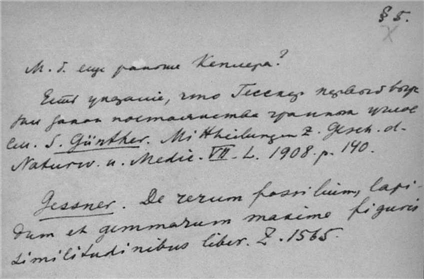 § 5.
М. б. еще раньше Кеплера?
Есть указание, что Гесснер первый
закон постоянства гранных углов
см. S. Günther. Mittheilungen z. Gesch. d.
Naturw. u. Medic. VII. L. 1908. p. 140.
Gessner. De rerum fossilium, lapi-
dum et gemmarum maxime figuris
similitudinibus liber. Z. 1565.